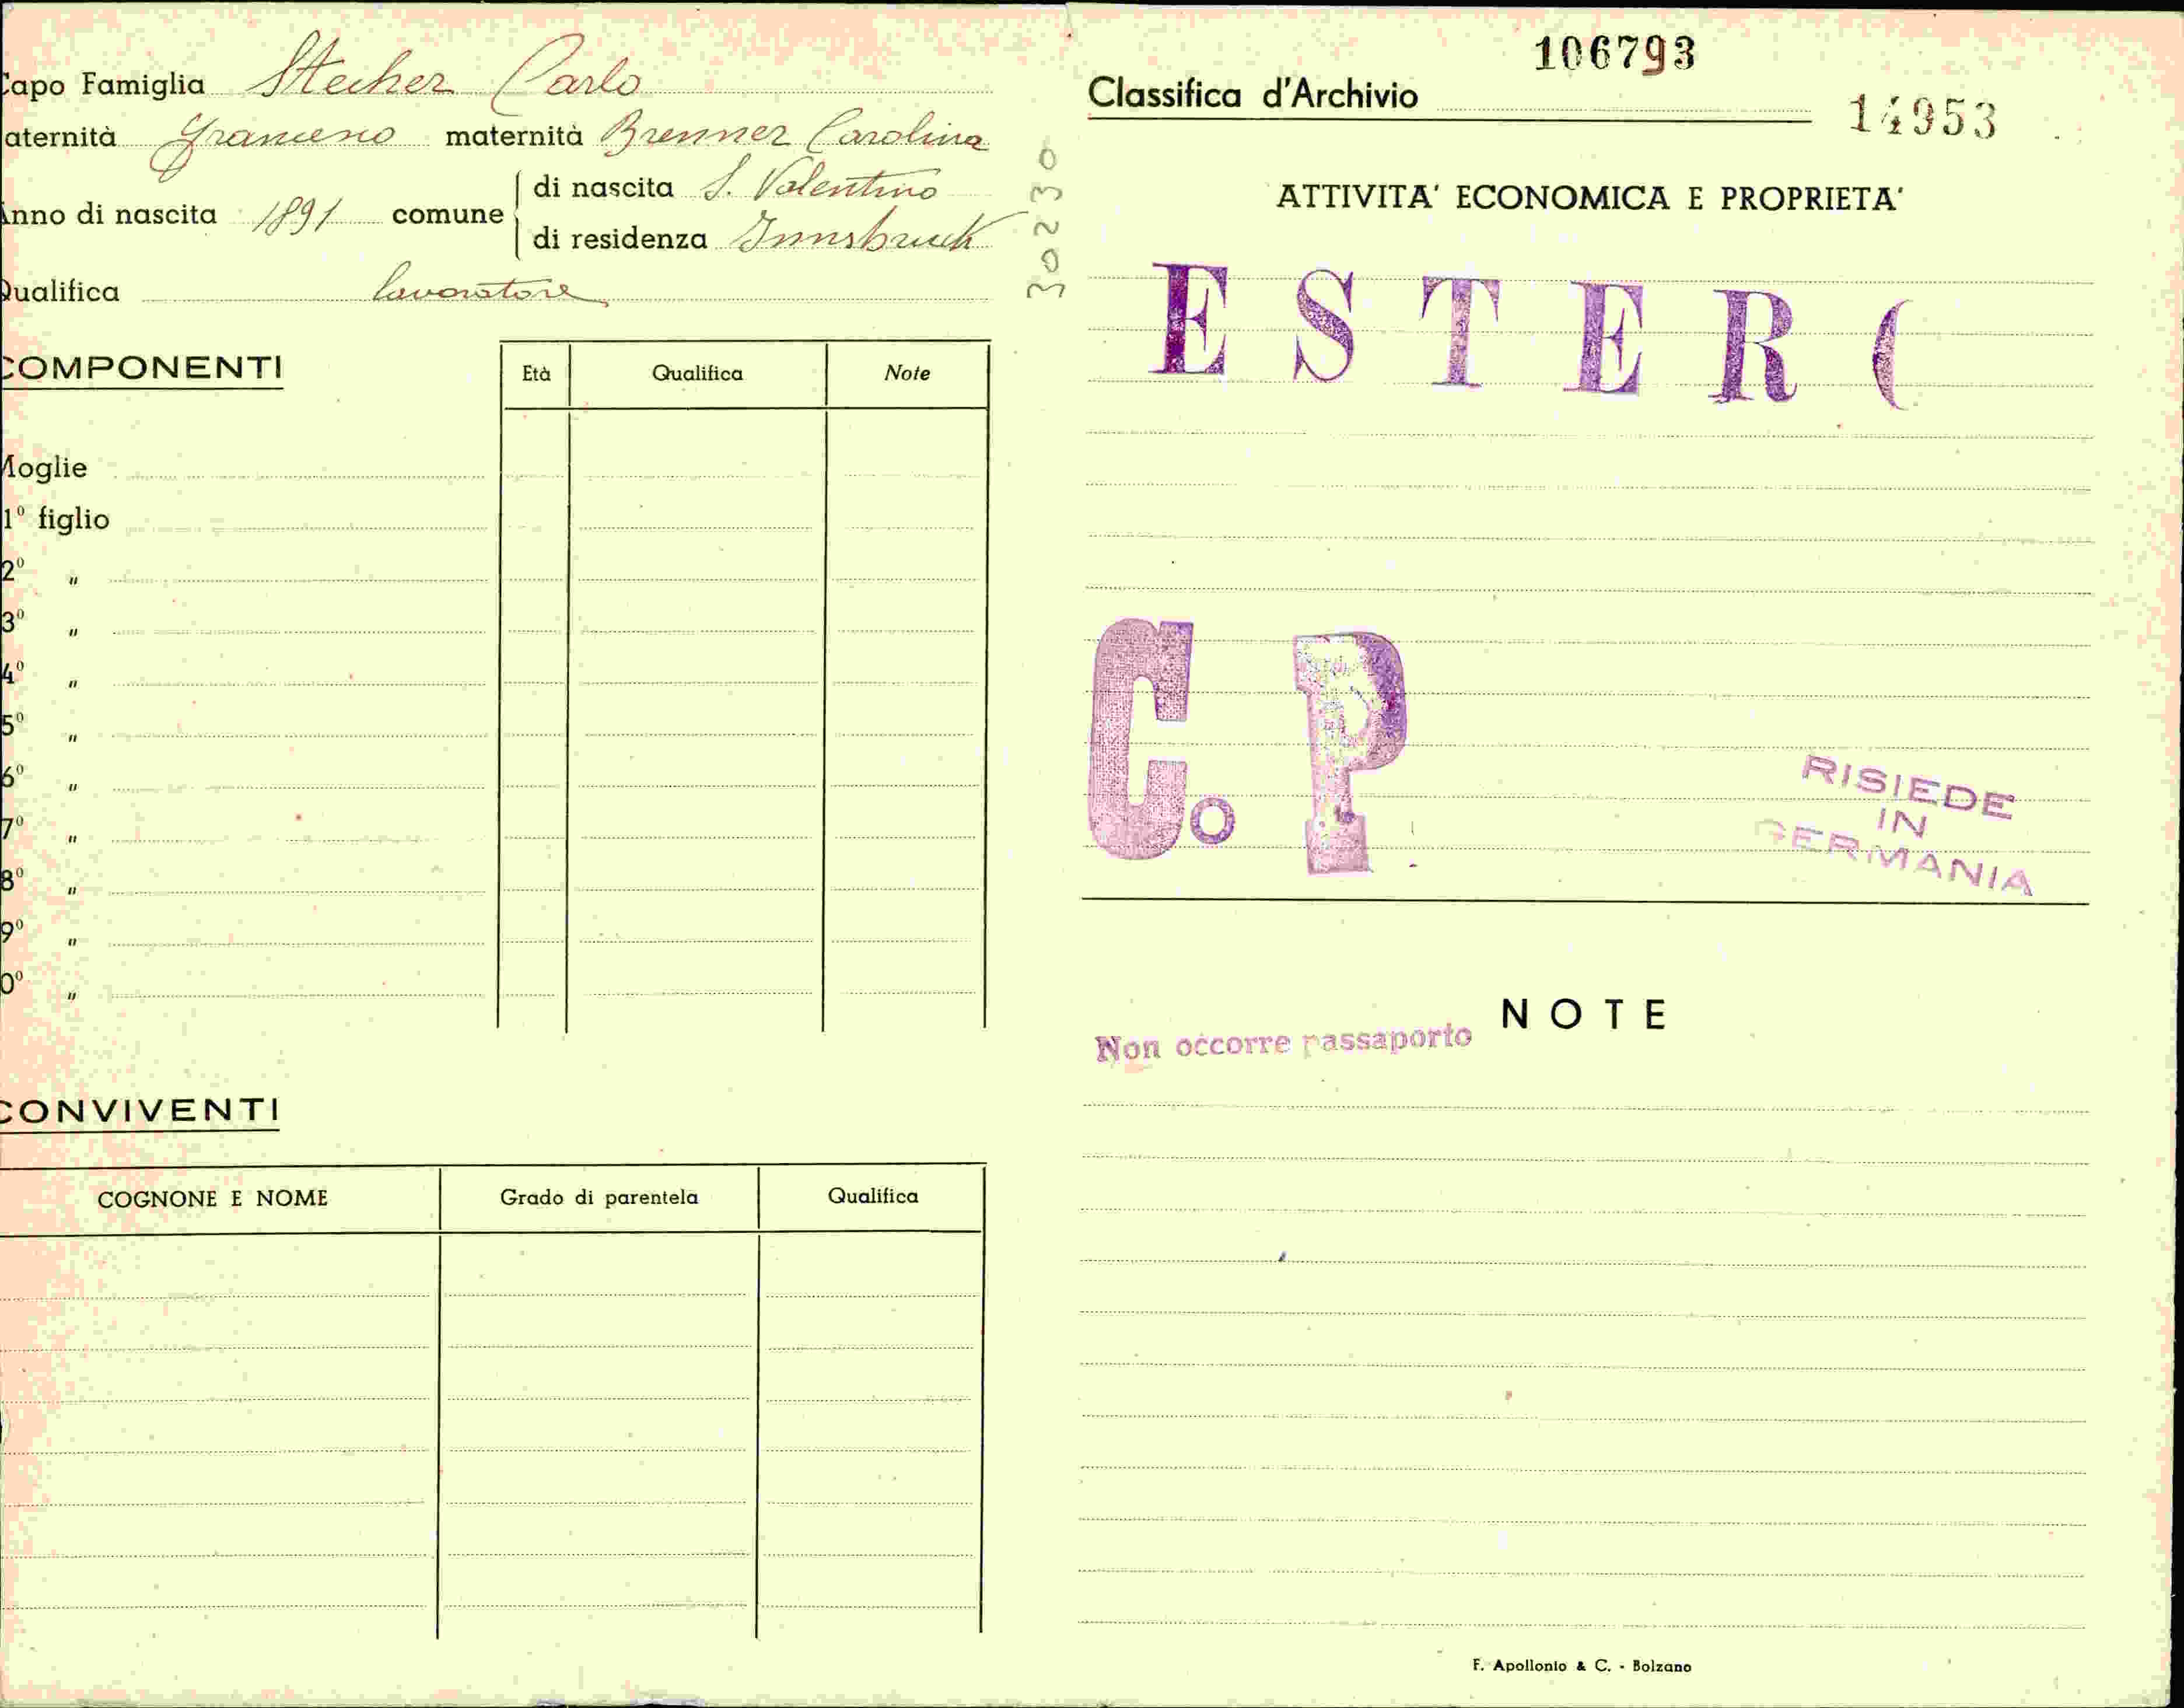 Capo Famiglia Stecher Carlo
aternità Francesco maternità Brenner Carolina
Anno di nascita 1891 comune di nascita S. Valentino
di residenza Innsbruck
Qualifica lavoratore
COMPONENTI Età Qualifica Note
Moglie
1º figlio
2º "
3º "
4º "
5º "
6º "
7º "
8º "
9º "
0º "
CONVIVENTI
COGNONE E NOME Grado di parentela Qualifica
30230
106793
Classifica d'Archivio 14953
ATTIVITA' ECONOMICA E PROPRIETA'
ESTER(
C.P
RISIEDE
IN
GERMANIA
NOTE
Non occorre passaporto
F. Apollonio & C. - Bolzano